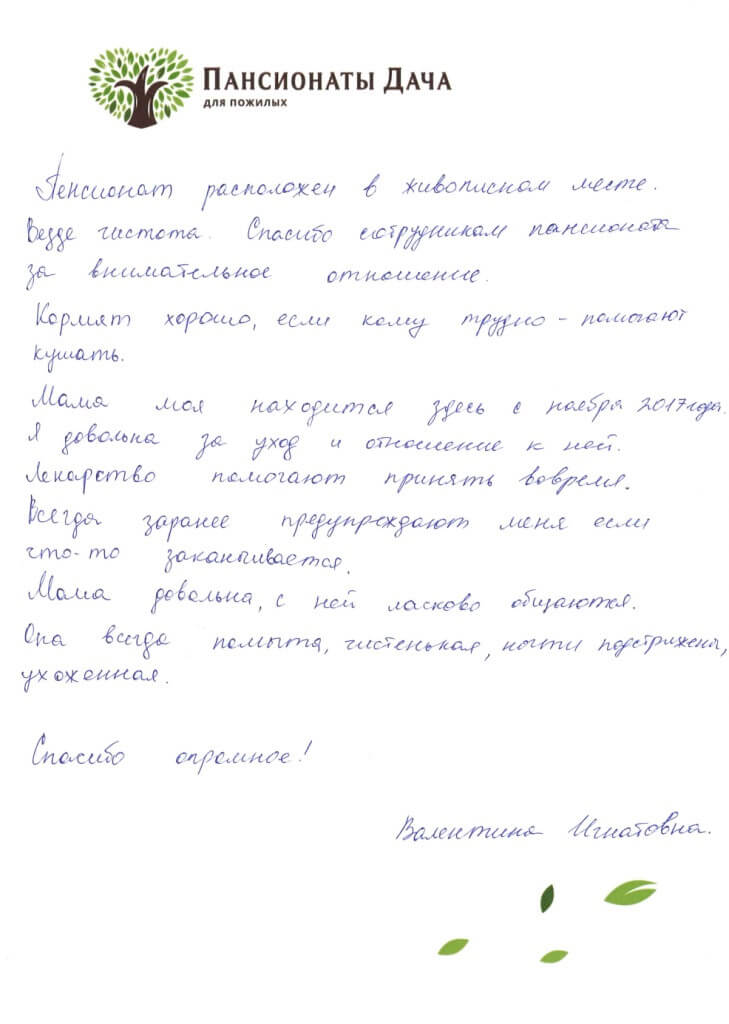 ПАНСИОНАТЫ ДАЧА
ДЛЯ ПОЖИЛЫХ
Пенсионат расположен в живописном месте.
Везде чистота. Спасибо сотрудникам пансионата
за внимательное отношение.
Кормят хорошо, если кому трудно - помогают
кушать.
Мама моя находится здесь с ноября 2017 года.
Я довольна за уход и отношение к ней.
Лекарство помогают принять вовремя.
Всегда заранее предупреждают меня если
что-то заканчивается.
Мама довольна, с ней ласково общаются.
Она всегда помыта, чистенькая, ногти подстрижены,
ухоженная.
Спасибо огромное!
Валентина Игнатовна.